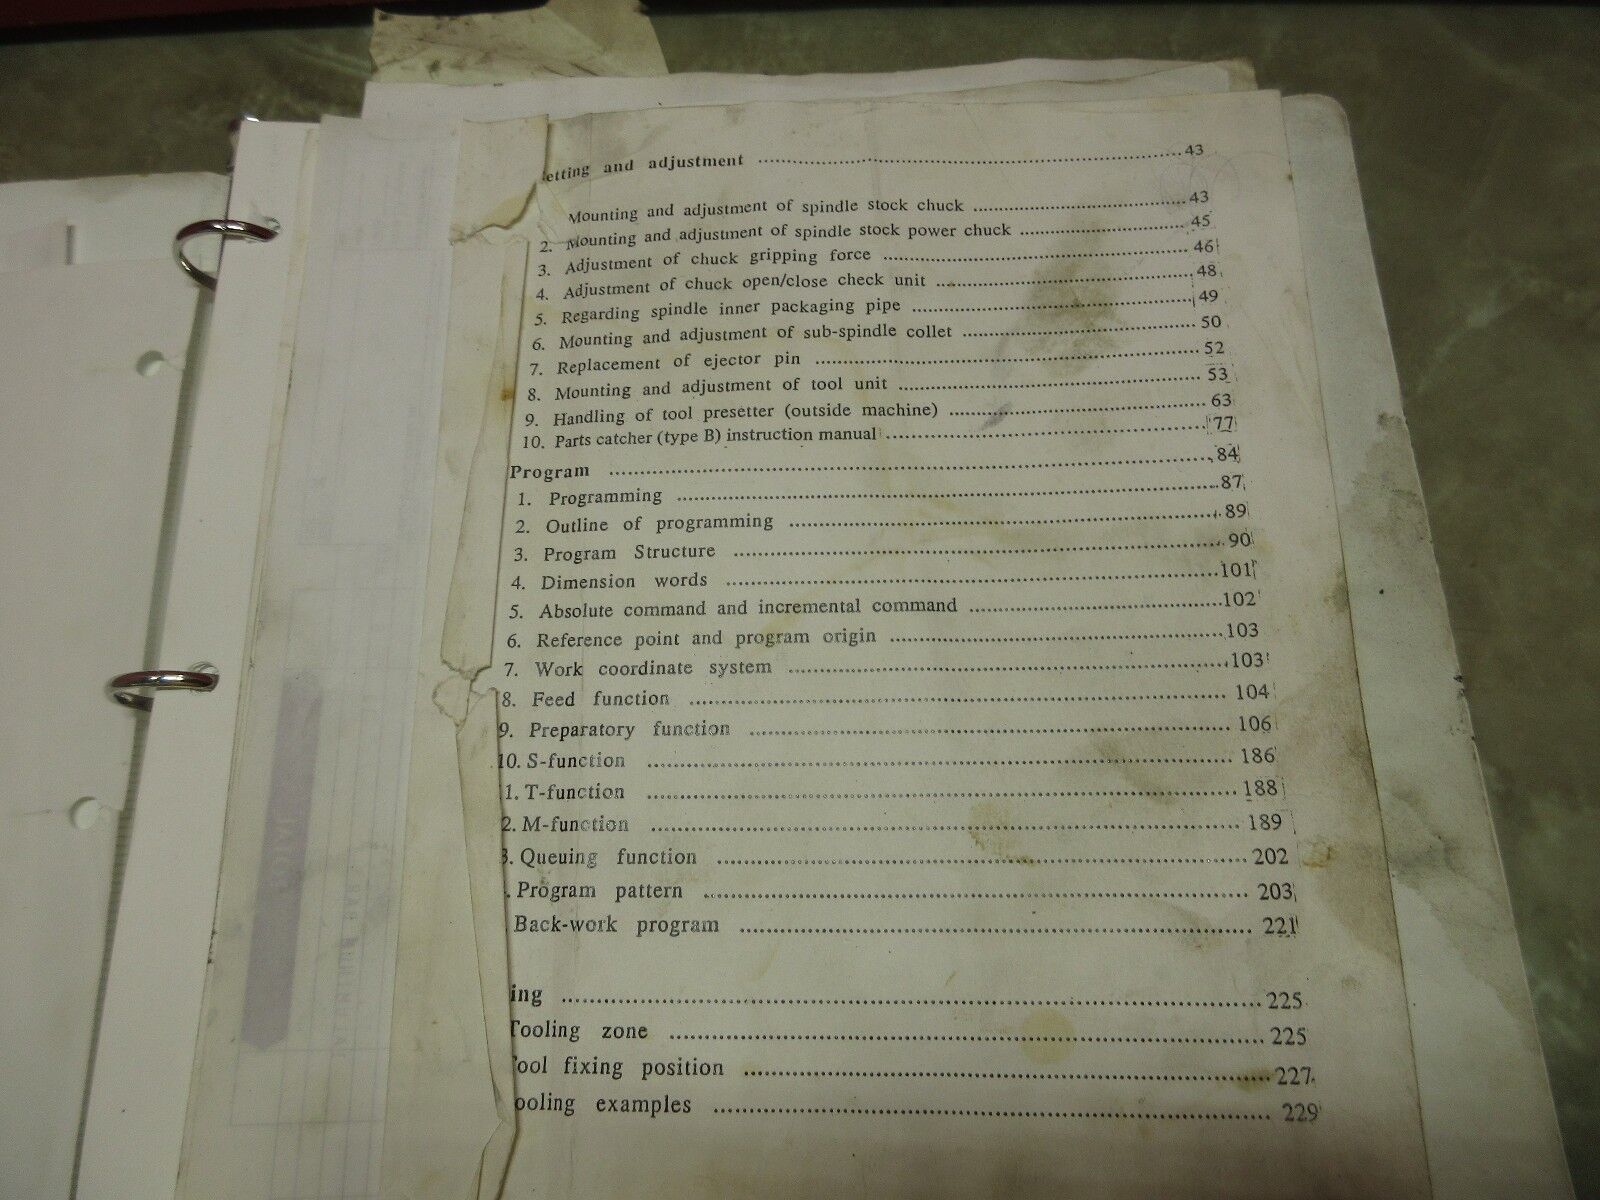 etting and adjustment 43
Mounting and adjustment of spindle stock chuck 43
2. Mounting and adjustment of spindle stock power chuck 45
3. Adjustment of chuck gripping force 46
4. Adjustment of chuck open/close check unit 48
5. Regarding spindle inner packaging pipe 49
6. Mounting and adjustment of sub-spindle collet 50
7. Replacement of ejector pin 52
8. Mounting and adjustment of tool unit 53
9. Handling of tool presetter (outside machine) 63
10. Parts catcher (type B) instruction manual 77
Program 84
1. Programming 87
2. Outline of programming 89
3. Program Structure 90
4. Dimension words 101
5. Absolute command and incremental command 102
6. Reference point and program origin 103
7. Work coordinate system 103
8. Feed function 104
9. Preparatory function 106
10. S-function 186
1. T-function 188
2. M-function 189
3. Queuing function 202
. Program pattern 203
Back-work program 221
ing 225
Tooling zone 225
ool fixing position 227
ooling examples 229